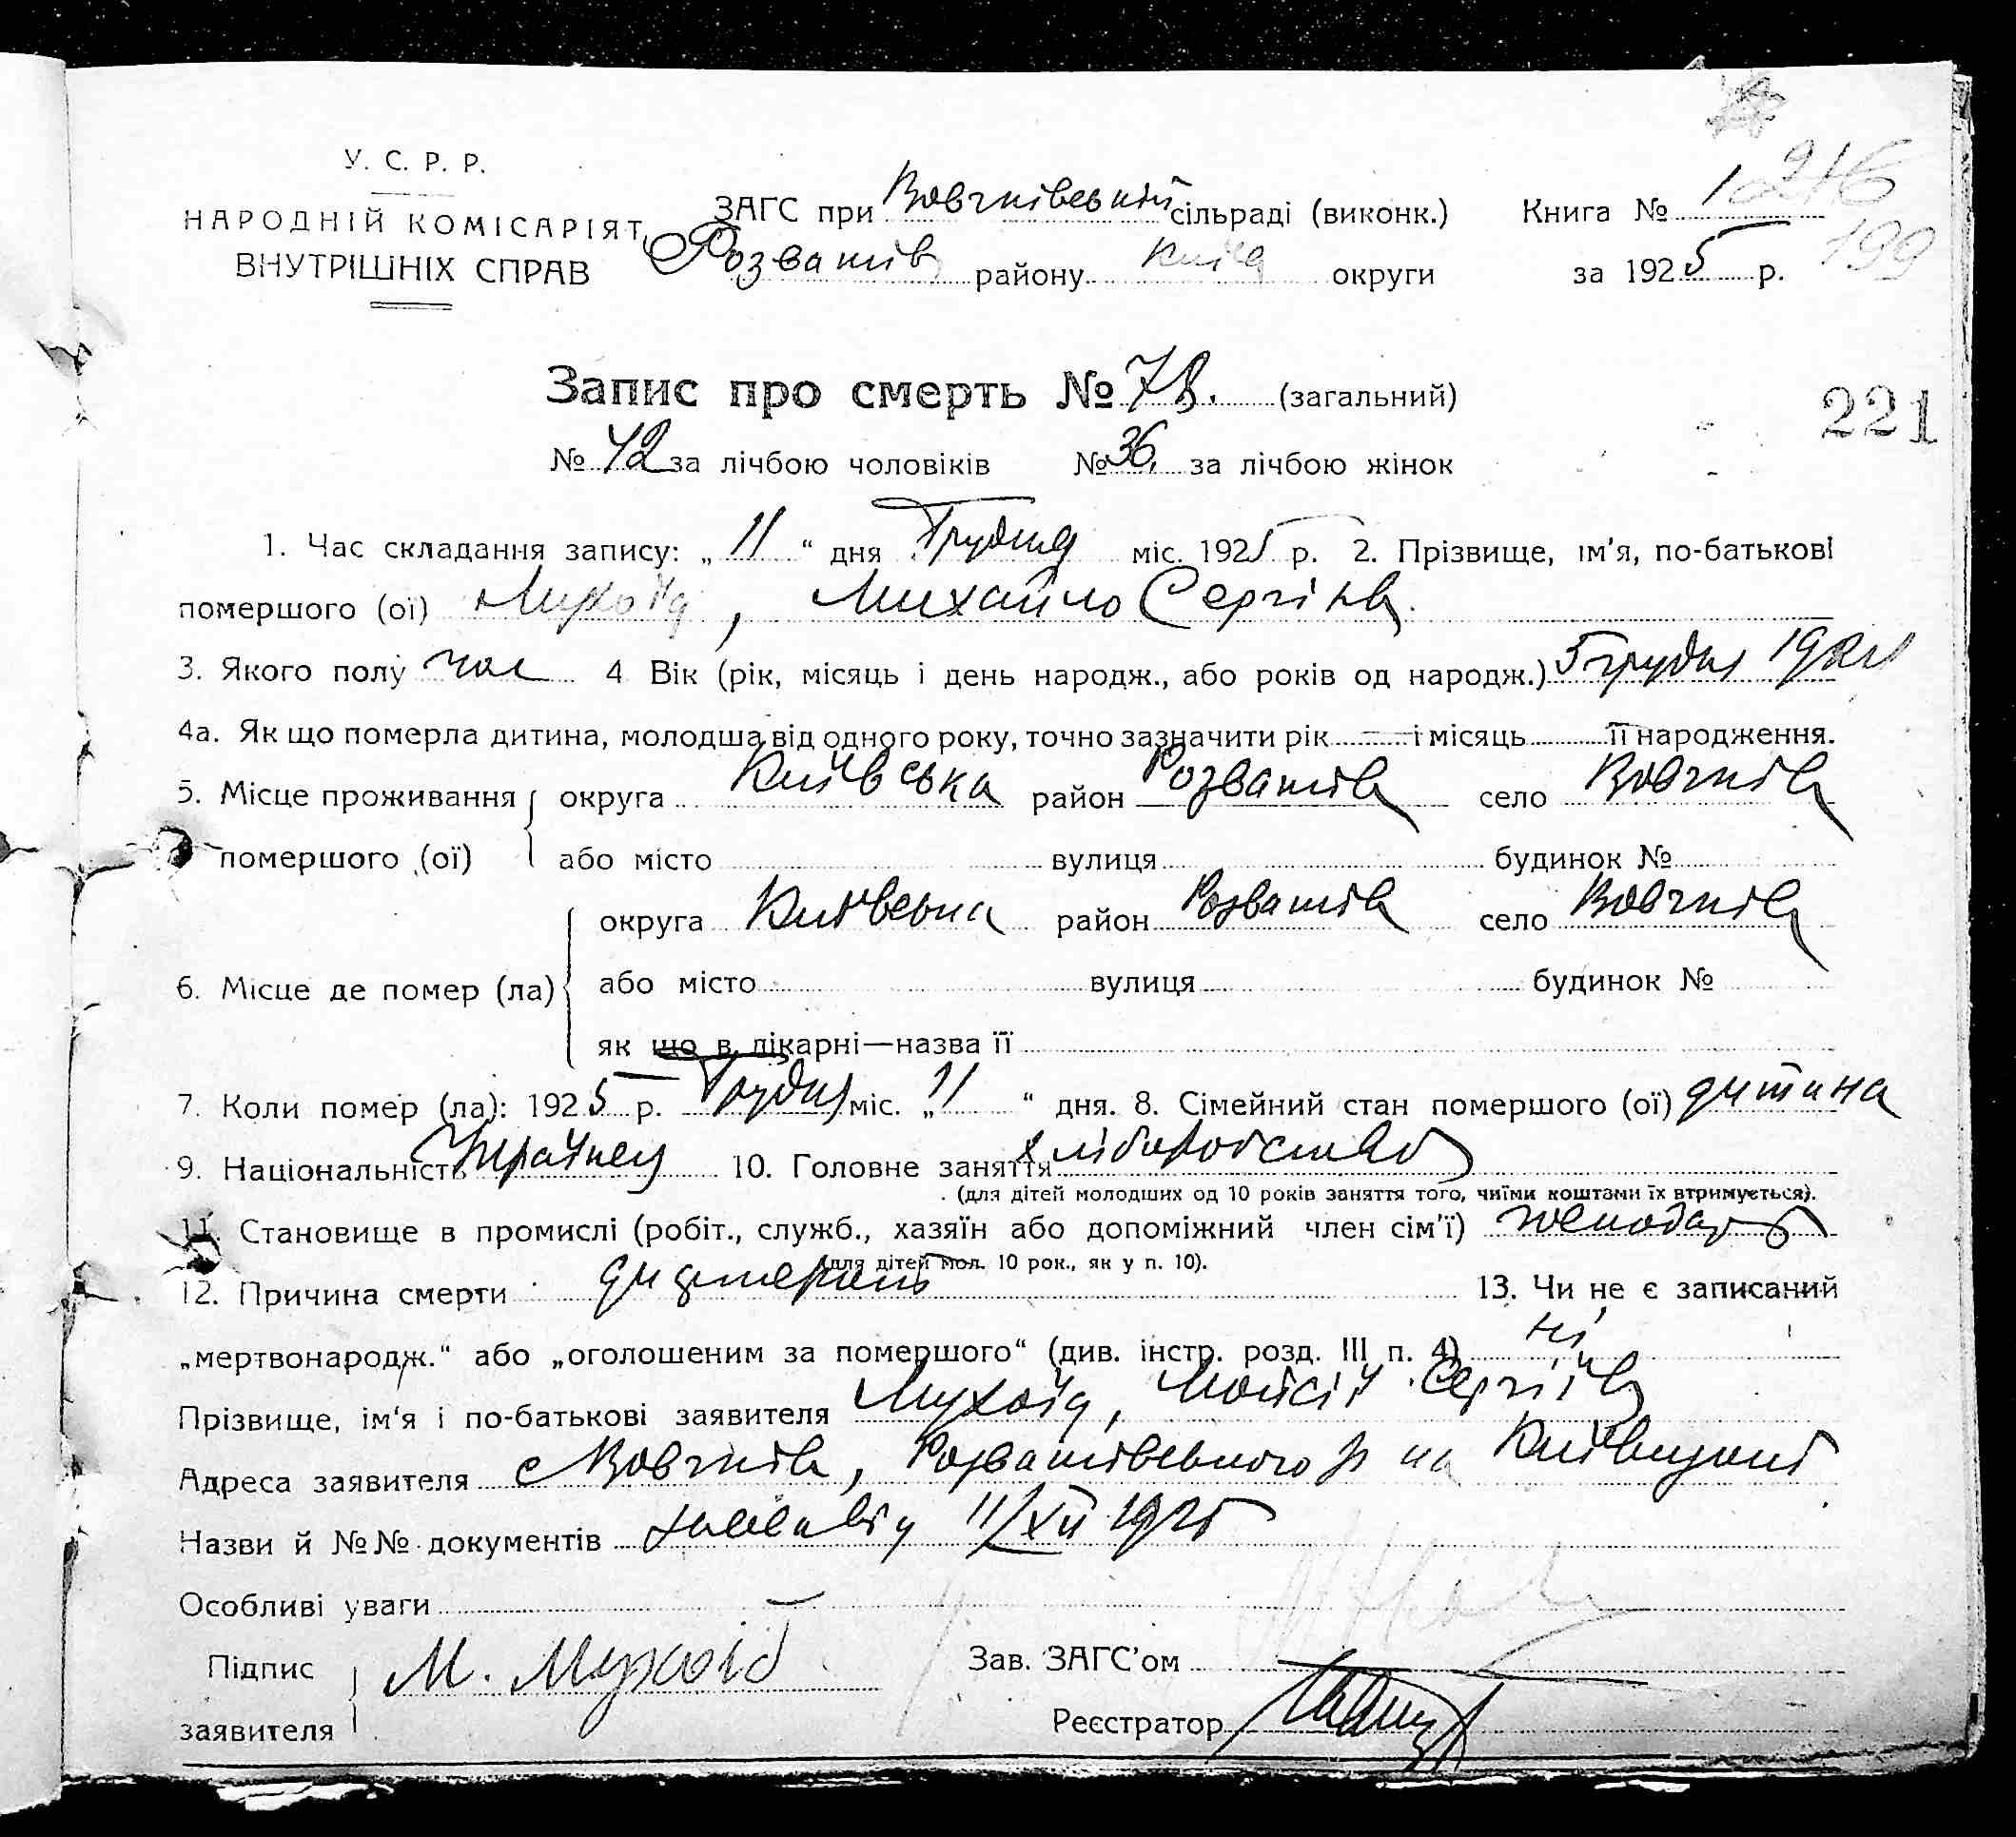 У. С. Р. Р.
НАРОДНІЙ КОМІСАРІЯТ
ВНУТРІШНІХ СПРАВ
ЗАГС при Вовчківській сільраді (виконк.)
Розважів району Київ округи
Книга № 1 246
за 1925 р. 199
Запис про смерть № 78. (загальний)
221
№ 42 за лічбою чоловіків № 36. за лічбою жінок
1. Час складання запису: „ 11 “ дня Грудня міс. 1925 р. 2. Прізвище, ім'я, по-батькові
помершого (ої) Мухоїд, Михайло Сергіїв.
3. Якого полу чол 4 Вік (рік, місяць і день народж., або років од народж.) 5 грудня
4а. Як що померла дитина, молодша від одного року, точно зазначити рік — і місяць її народження.
5. Місце проживання округа Київська район Розважів село Вовчків
помершого (ої) або місто вулиця будинок №
округа Київська район Розважів село Вовчків
6. Місце де помер (ла) або місто вулиця будинок №
як що в лікарні—назва її
7. Коли помер (ла): 1925 р. Грудня міс. „ 11 “ дня. 8. Сімейний стан помершого (ої) дитина
9. Національність Українец 10. Головне заняття хліборобство
(для дітей молодших од 10 років заняття того, чиїми коштами їх втримується).
11. Становище в промислі (робіт., служб., хазяїн або допоміжний член сім'ї) господар
(для дітей мол. 10 рок., як у п. 10).
12. Причина смерти дизентерія 13. Чи не є записаний
„мертвонародж.“ або „оголошеним за помершого“ (див. інстр. розд. III п. 4) ні
Прізвище, ім'я і по-батькові заявителя Мухоїд, Мойсій Сергіїв
Адреса заявителя с Вовчків, Розважівського р на Київщині
Назви й №№ документів 11/XII 1925
Особливі уваги
Підпис М. Мухоїд Зав. ЗАГС'ом
заявителя Реєстратор